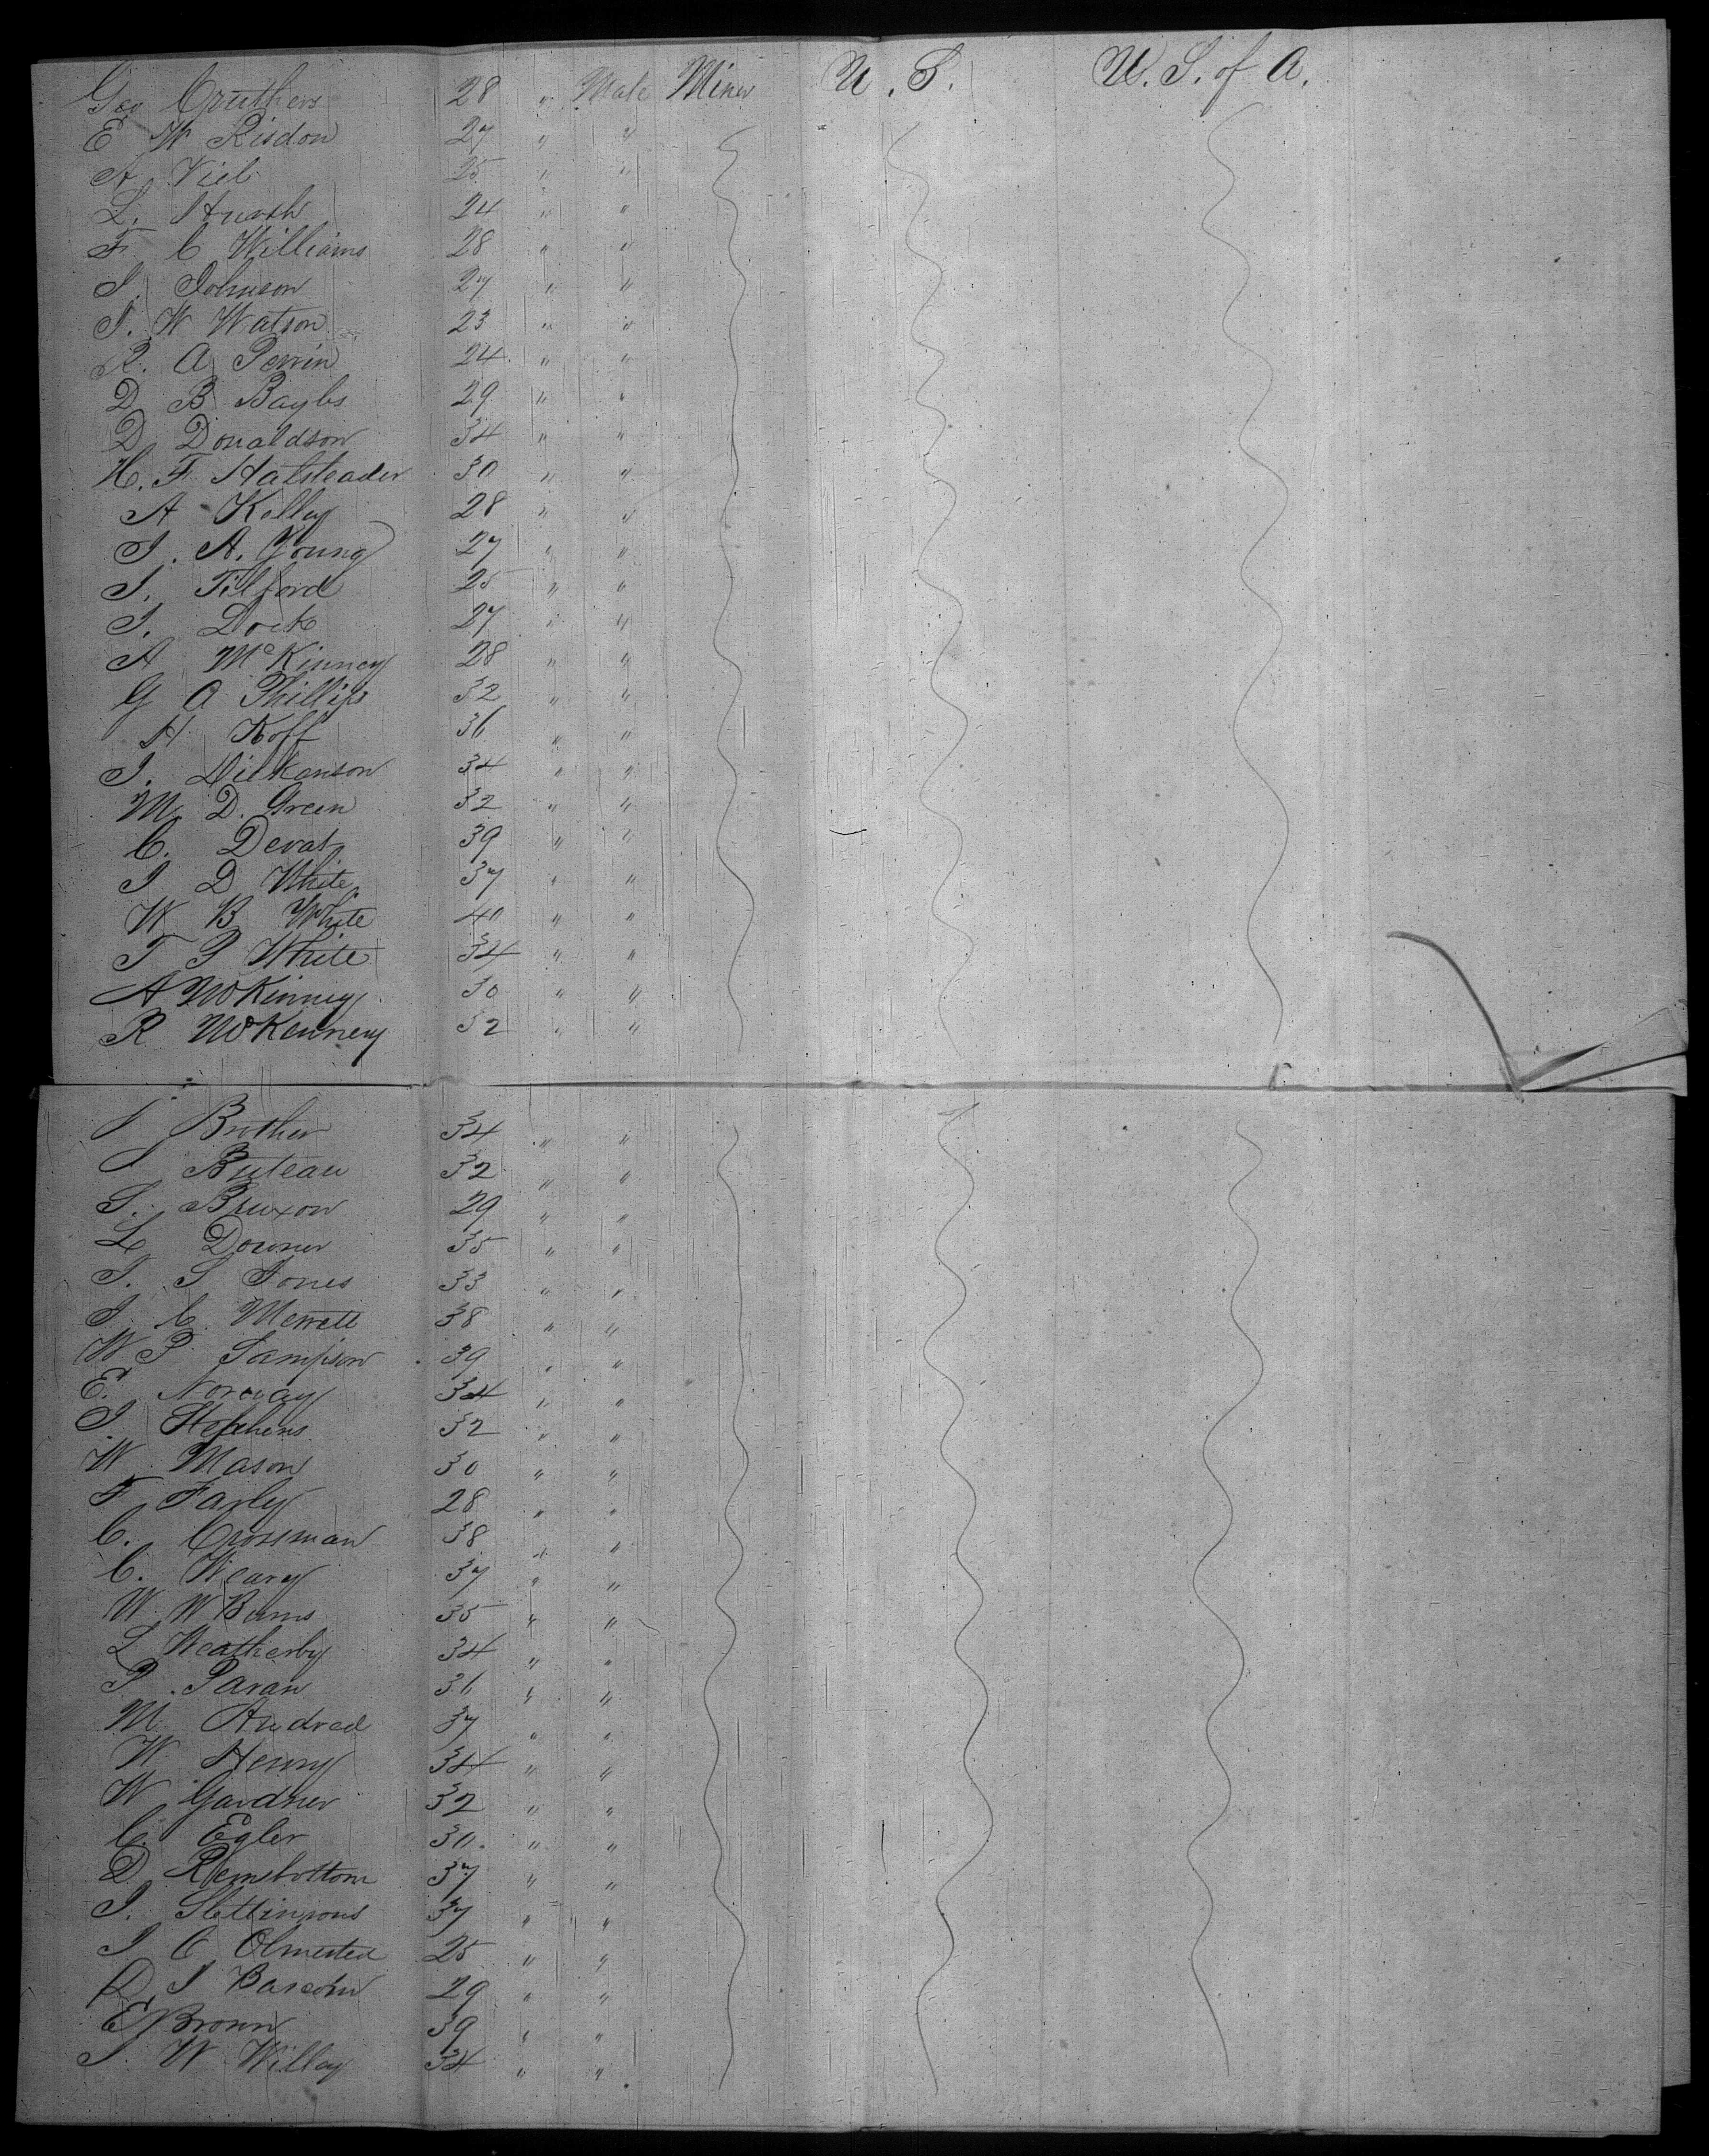 Geo Cruthers 28 " Male Miner U. S. U. S. of A.
E W Risdon 27 " "
A Viel 25 " "
L. 24 " "
F C Williams 28 " "
J. Johnson 27 " "
J. W Watson 23 " "
R. A Perrin 24 " "
D B Bayles 29 " "
D Donaldson 34 " "
H. F Halsteader 30 " "
A Kelley 28 " "
J. A. Young 27 " "
J. Tilford 25 " "
J. Dock 27 " "
A McKinney 28 " "
G A Phillips 32 " "
H Koff 36 " "
J. Dickanson 34 " "
M D. Green 32 " "
C. Devat 39 " "
J D White 37 " "
W B White 40 " "
T P White 34 " "
A McKinney 30 " "
R McKenney 32 " "
J Brother 34 " "
J Buteau 32 " "
S. Bruxon 29 " "
L Downer 35 " "
T. S Jones 33 " "
J. C. Merrell 38 " "
W P Sampson 39 " "
E. Norway 34 " "
J. Stephens 32 " "
W. Mason 30 " "
F Farley 28 " "
C. Crossman 38 " "
C. Weary 37 " "
W. W Burns 35 " "
L Weatherby 34 " "
P. Paran 36 " "
M Andrad 37 " "
W Henry 34 " "
W Gardner 32 " "
C. Egler 30 " "
D Remsbottom 37 " "
J. 37 " "
J C Olmsted 25 " "
D J Bascom 29 " "
E Brown 39 " "
J. W Willey 34 " "